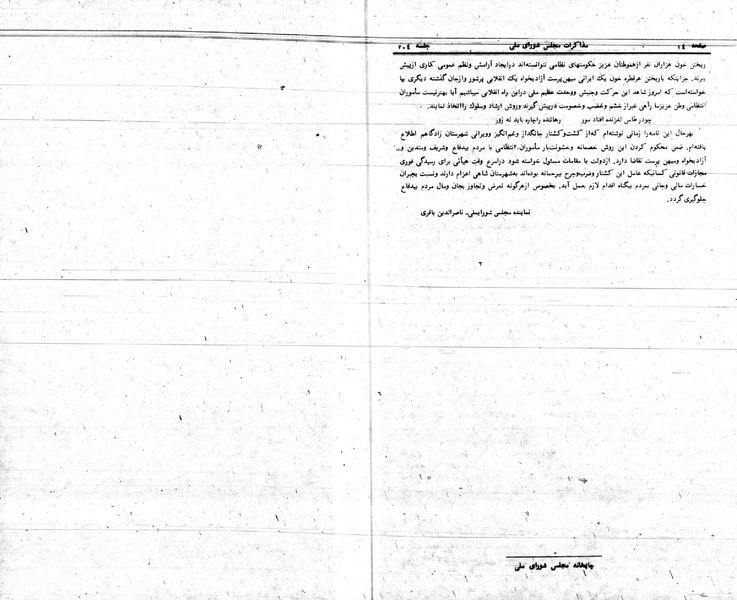 صفحه ۱۴ مذاکرات مجلس شورای ملی جلسه ۲۰۴
ریختن خون هزاران نفر ازهموطنان عزیز حکومتهای نظامی نتوانسته‌اند درایجاد آرامش ونظم عمومی کاری ازپیش
ببرند. جزاینکه باریختن هرقطره خون یک ایرانی میهن‌پرست آزادیخواه یک انقلابی پرشور وازجان گذشته دیگری بپا
خواسته‌است که امروز شاهد این حرکت وجنبش ووحدت عظیم ملی دراین راه انقلابی میباشیم آیا بهترنیست مأموران
انتظامی وطن عزیزما راهی غیراز خشم وغضب وخصومت درپیش گیرند وروش ارشاد وسلوک رااتخاذ نمایند.
چودر طاس لغزنده افتاد مور رهاننده راچاره باید نه زور
بهرحال این نامه‌را زمانی نوشته‌ام که‌از کشت‌وکشتار جانگداز وغم‌انگیز وویرانی شهرستان زادگاهم اطلاع
یافته‌ام. ضمن محکوم کردن این روش خصمانه وخشونت‌بار مأموران انتظامی با مردم بیدفاع وشریف ومتدین و
آزادیخواه ومیهن پرست تقاضا دارد. ازدولت یا مقامات مسئول خواسته شود دراسرع وقت هیأتی برای رسیدگی فوری
مجازات قانونی کسانیکه عامل این کشتار وضرب‌وجرح بیرحمانه بوده‌اند به‌شهرستان شاهی اعزام دارند ونسبت بجبران
خسارات مالی وجانی بمردم بیگناه اقدام لازم بعمل آید. بخصوص ازهرگونه تعرض وتجاوز بجان ومال مردم بیدفاع
جلوگیری گردد.
نماینده مجلس شورایملی- ناصرالدین باقری
چاپخانه مجلس شورای ملی